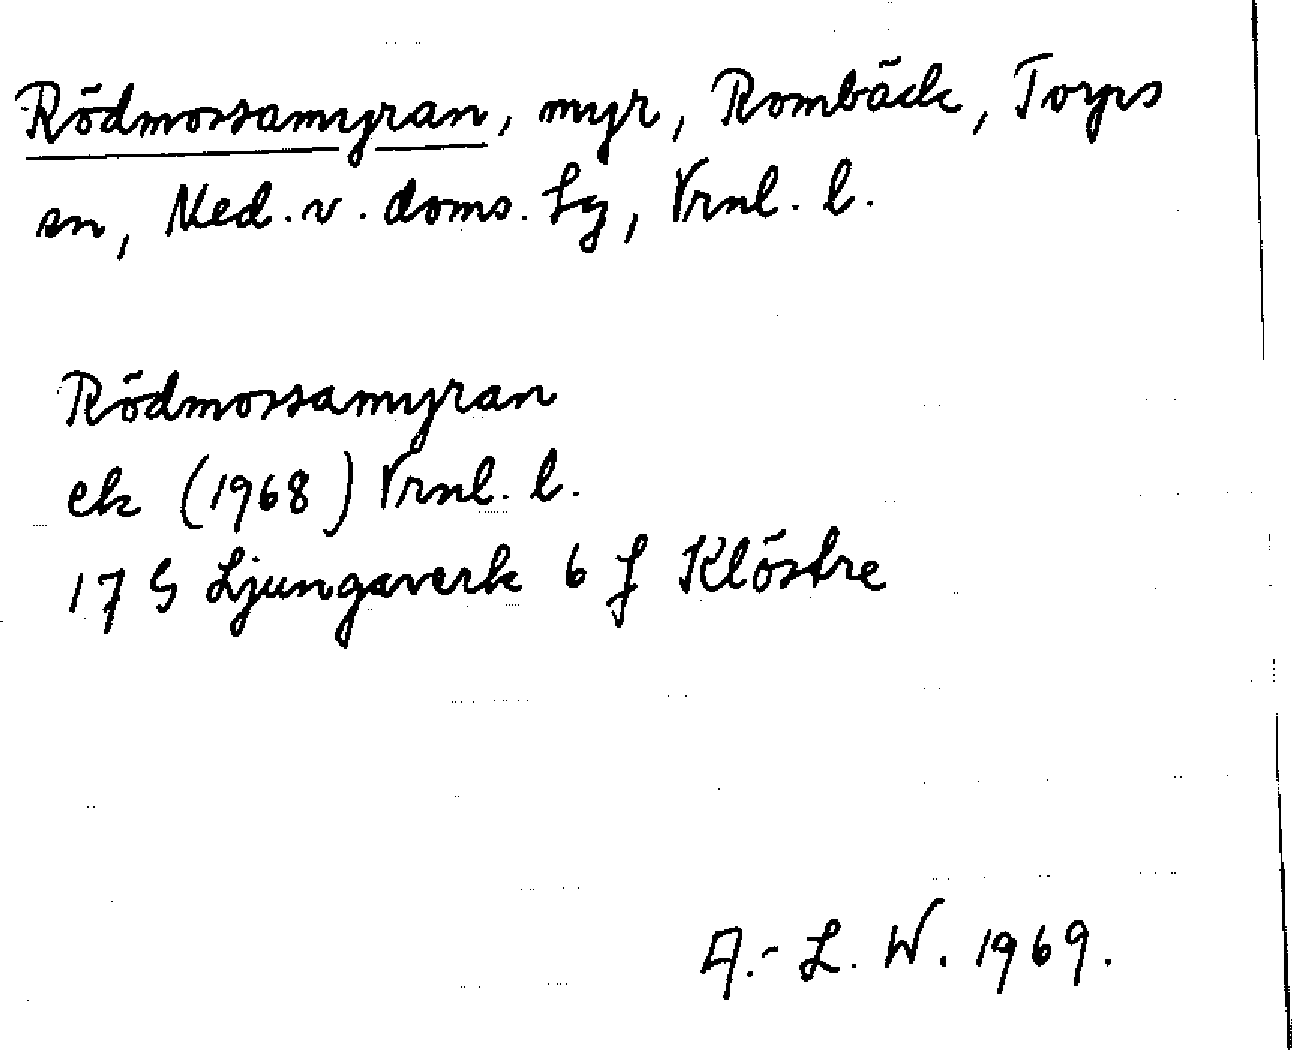 Rödmossamyran, myr, Rombäck, Torps
sn, Med. v. doms. lg, Vrnl. l.
Rödmossamyran
ek (1968) Vrnl. l.
17 G Ljungaverk 6 f Klöstre
A.-L. W. 1969.